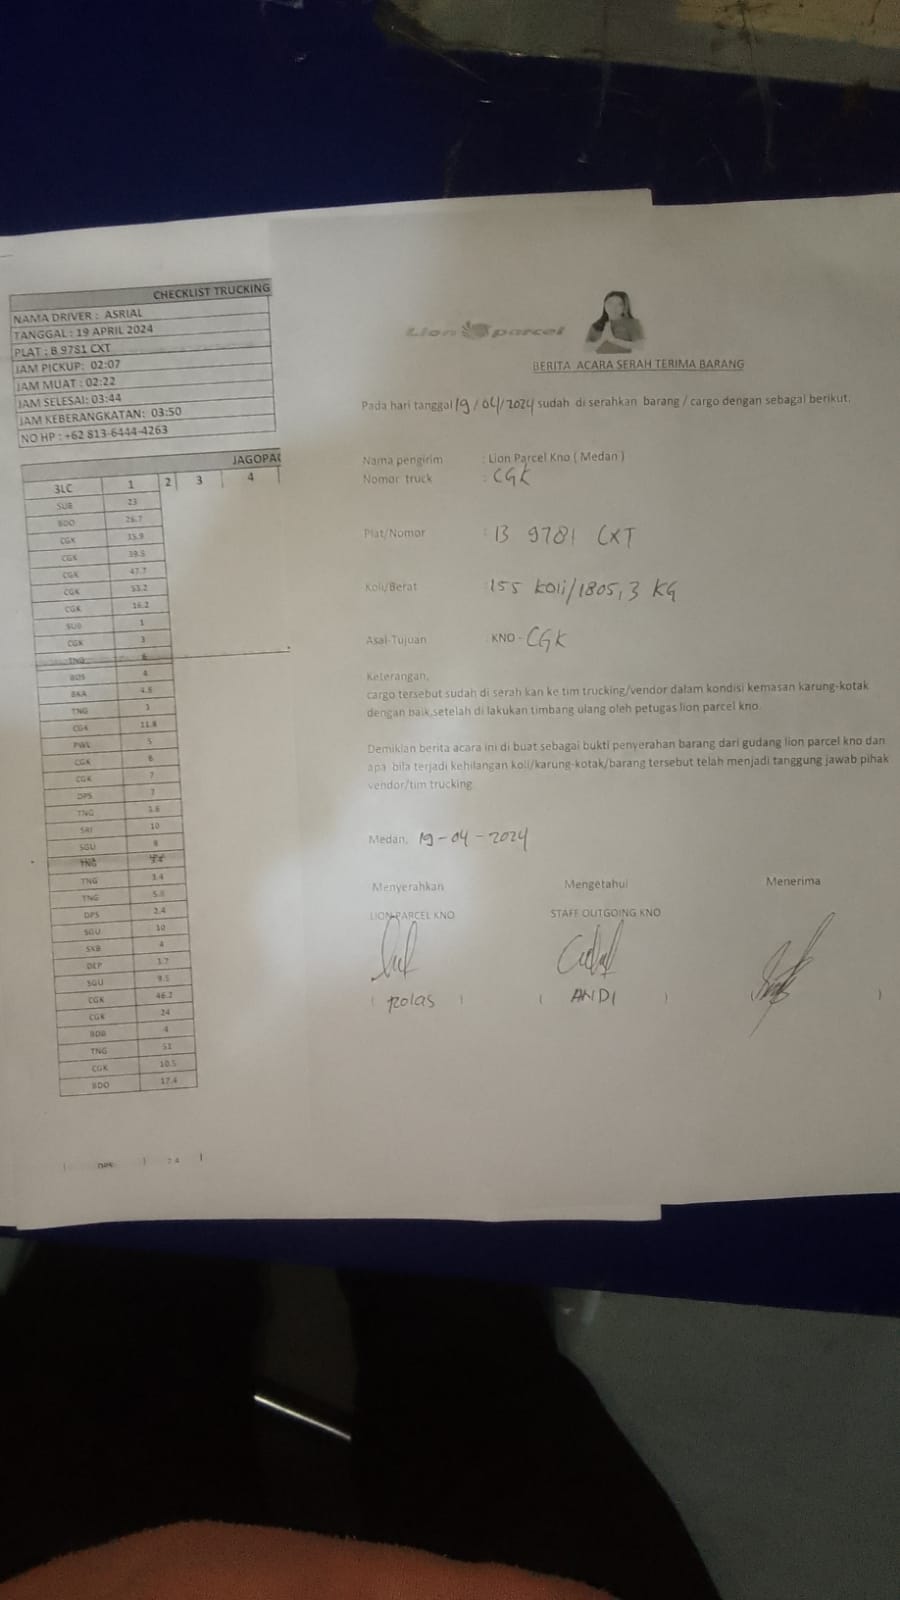 CHECKLIST TRUCKING
NAMA DRIVER : ASRIAL
TANGGAL : 19 APRIL 2024
PLAT : B 9781 CXT
JAM PICKUP: 02:07
JAM MUAT : 02:22
JAM SELESAI: 03:44
JAM KEBERANGKATAN: 03:50
NO HP : +62 813-6444-4263
JAGOPA
3LC 1 2 3 4
SUB 23
BDO 26.7
CGK 35.9
CGK 39.5
CGK 47.7
CGK 53.2
CGK 16.2
SUB 1
CGK 3
TNG 6
BDS 4
BKA 4.8
TNG 3
CGK 11.8
PWL 5
CGK 6
CGK 7
DPS 7
TNG 3.6
SRI 10
SGU 8
TNG
TNG 3.4
TNG 5.8
DPS 2.4
SGU 10
SKB 4
DEP 3.7
SGU 9.5
CGK 46.2
CGK 24
BDO 4
TNG 51
CGK 10.5
BDO 17.4
Lion parcel
BERITA ACARA SERAH TERIMA BARANG
Pada hari tanggal 19/04/2024 sudah di serahkan barang / cargo dengan sebagai berikut.
Nama pengirim : Lion Parcel Kno ( Medan )
Nomor truck : CGK
Plat/Nomor : B 9781 CXT
Koli/Berat : 155 Koli/1805,3 KG
Asal-Tujuan : KNO - CGK
Keterangan,
cargo tersebut sudah di serah kan ke tim trucking/vendor dalam kondisi kemasan karung-kotak
dengan baik,setelah di lakukan timbang ulang oleh petugas lion parcel kno
Demikian berita acara ini di buat sebagai bukti penyerahan barang dari gudang lion parcel kno dan
apa bila terjadi kehilangan koli/karung-kotak/barang tersebut telah menjadi tanggung jawab pihak
vendor/tim trucking
Medan, 19-04-2024
Menyerahkan Mengetahui Menerima
LION PARCEL KNO STAFF OUTGOING KNO
( Rolas ) ( ANDI ) )